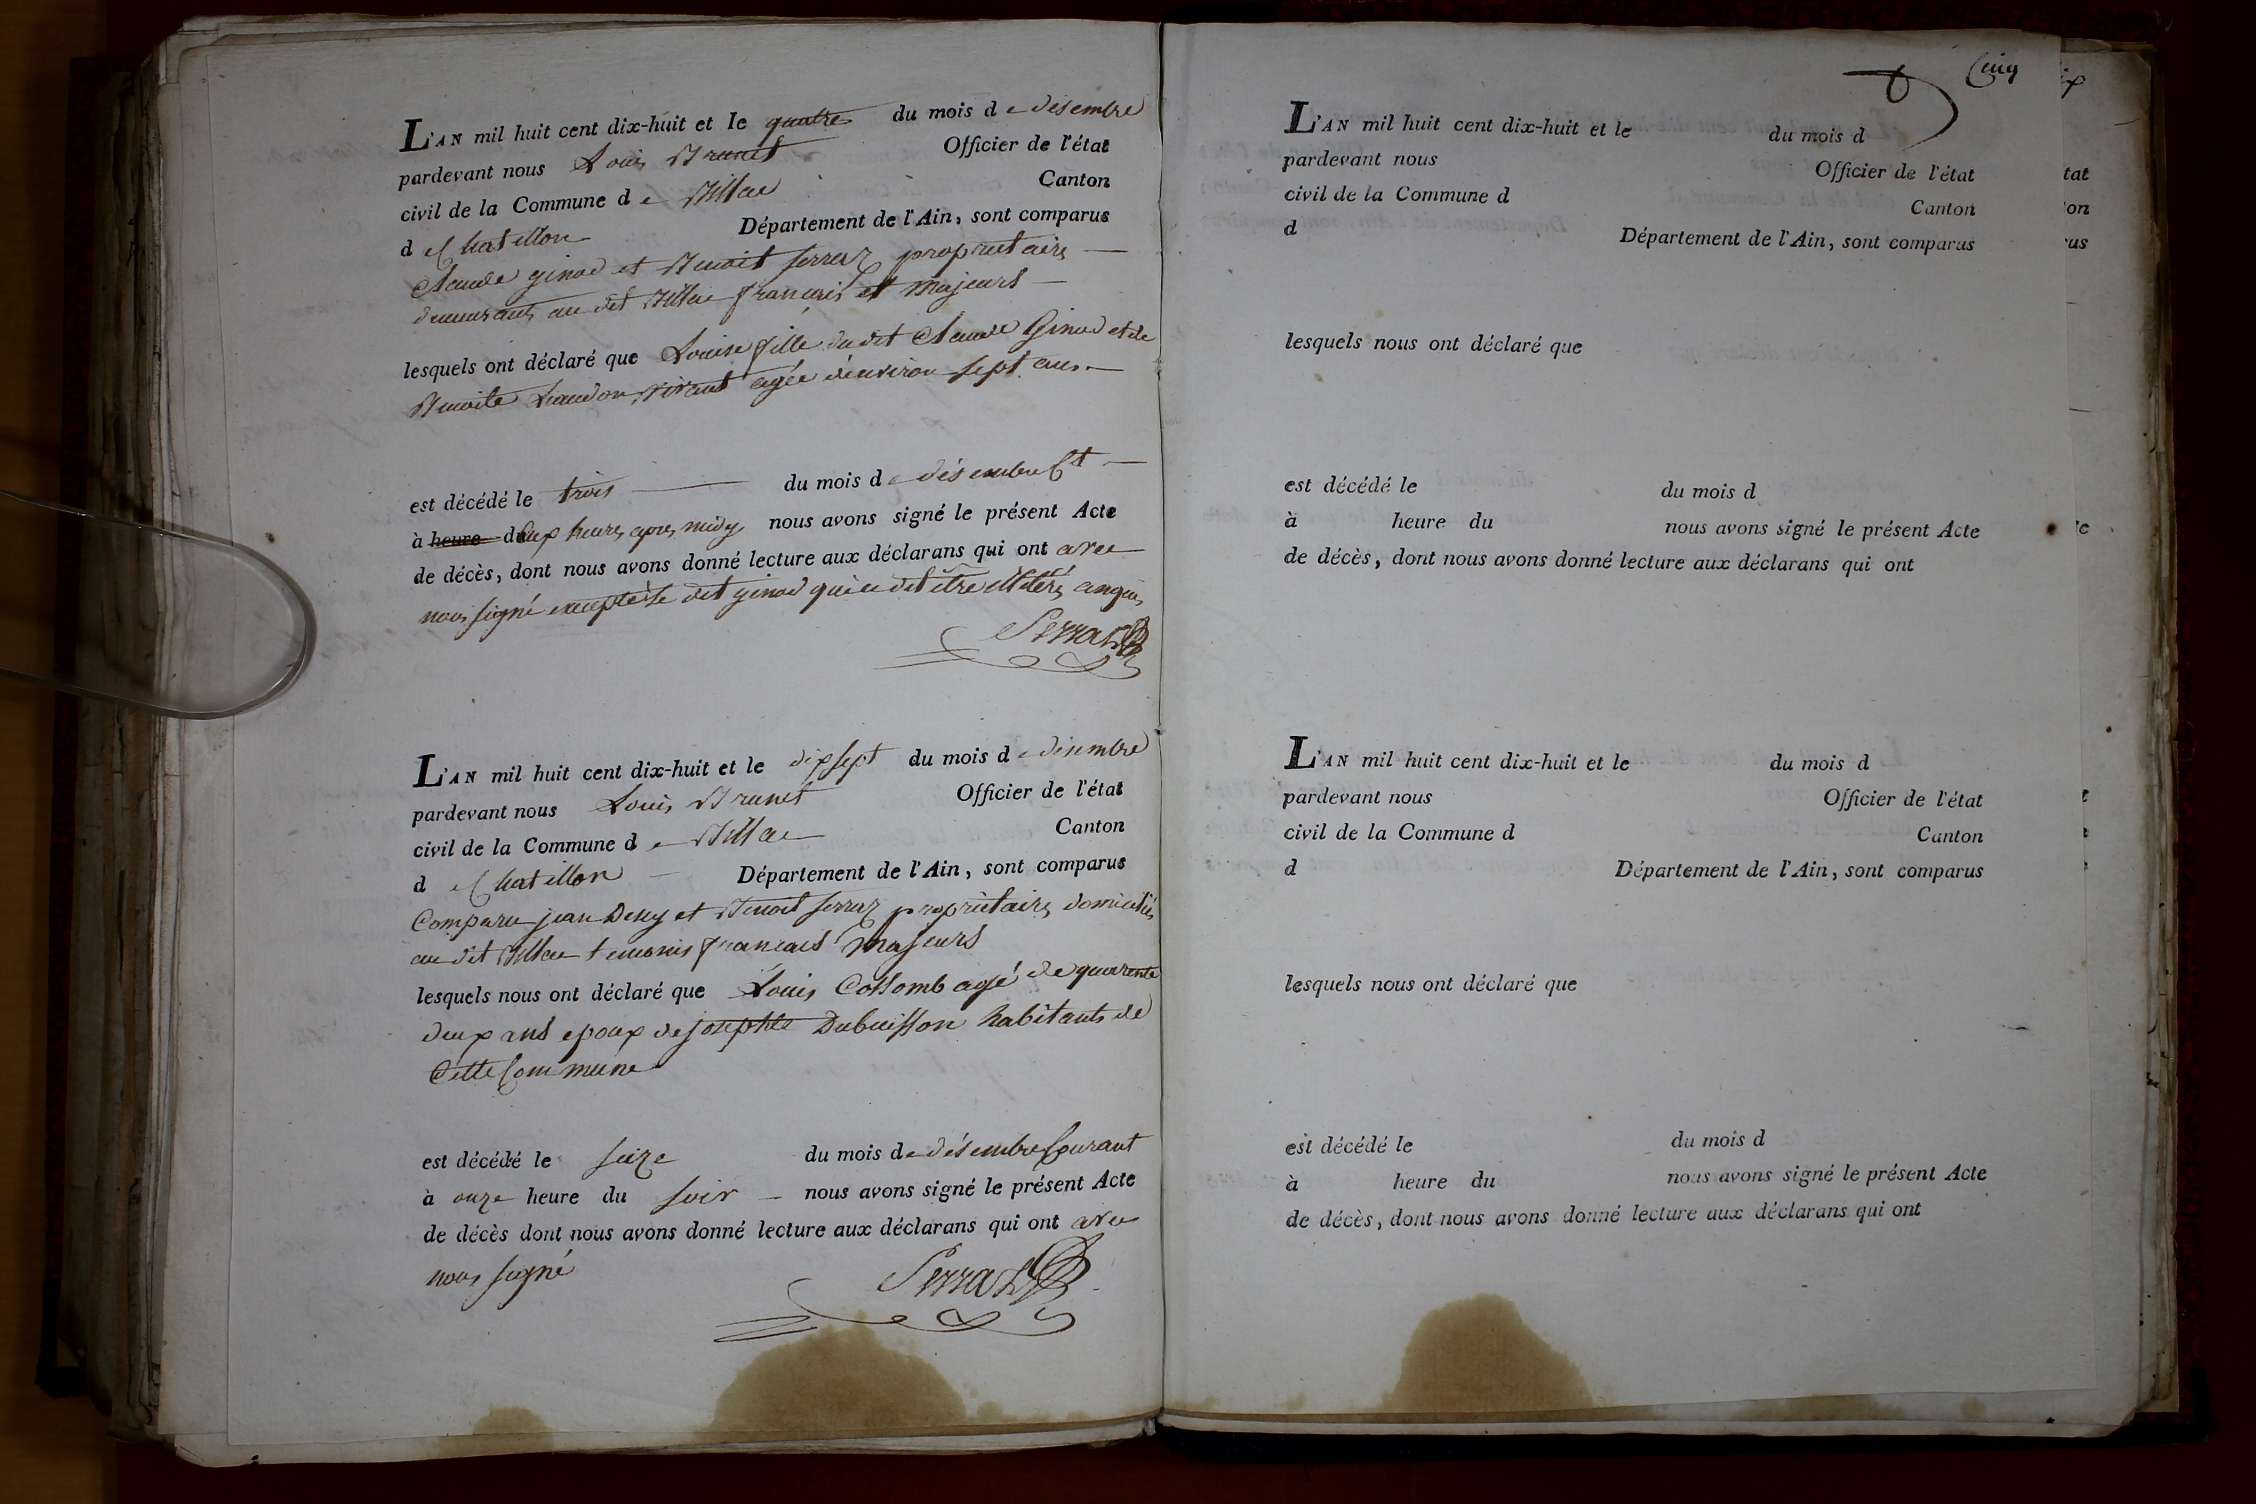 L'AN mil huit cent dix-huit et le quatre du mois de désembre
pardevant nous Louis Brunet Officier de l'état
civil de la Commune de Billac Canton
de Chatillon Département de l'Ain, sont comparus
Claude ginod et Benoit serraz proprietaires
demeurants au dit Billac français et majeurs
lesquels ont déclaré que Louise fille du dit Claude Ginod et de
Benoite vivant agée d'environ sept ans
est décédé le trois du mois de désembre Ct
à heure deux heures apres midy nous avons signé le présent Acte
de décès, dont nous avons donné lecture aux déclarans qui ont avec
nous signé excepté le dit ginod qui a dit être illiteré
Serraz
L'AN mil huit cent dix-huit et le dix sept du mois de désembre
pardevant nous Louis Brunet Officier de l'état
civil de la Commune de Billac Canton
de Chatillon Département de l'Ain, sont comparus
Comparu jean Deny et Benoit serraz proprietaires domiciliés
au dit Billac temoins français majeurs
lesquels nous ont déclaré que Louis Collomb agé de quarente
deux ans epoux de josephte Dubuisson habitants de
Cette Commune
est décédé le seize du mois de désembre Courant
à onze heure du soir nous avons signé le présent Acte
de décès dont nous avons donné lecture aux déclarans qui ont avec
nous signé
Serraz
Cinq
L'AN mil huit cent dix-huit et le du mois d
pardevant nous Officier de l'état
civil de la Commune d Canton
d Département de l'Ain, sont comparus
lesquels nous ont déclaré que
est décédé le du mois d
à heure du nous avons signé le présent Acte
de décès, dont nous avons donné lecture aux déclarans qui ont
L'AN mil huit cent dix-huit et le du mois d
pardevant nous Officier de l'état
civil de la Commune d Canton
d Département de l'Ain, sont comparus
lesquels nous ont déclaré que
est décédé le du mois d
à heure du nous avons signé le présent Acte
de décès, dont nous avons donné lecture aux déclarans qui ont